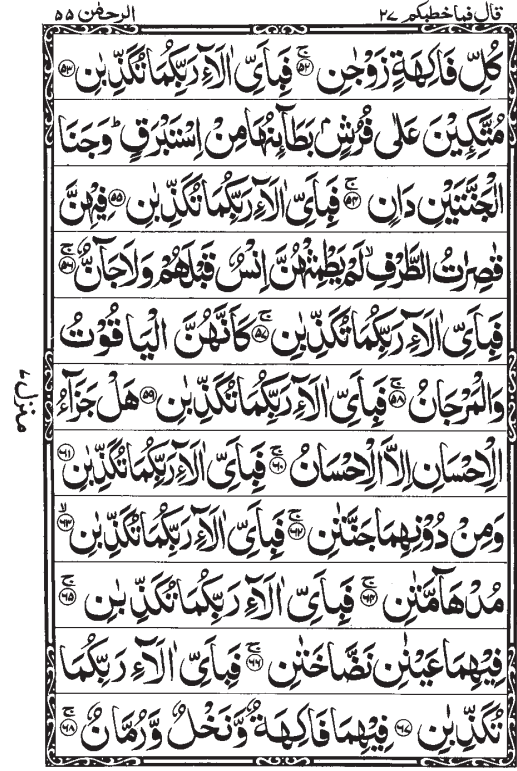 قال فما خطبكم ٢٧
الرحمٰن ٥٥
كُلِّ فَاكِهَةٍ زَوْجٰنِ ۚ‏﴿٥٢﴾ فَبِاَىِّ اٰلَآءِ رَبِّكُمَا تُكَذِّبٰنِ ﴿٥٣﴾
مُتَّكِـِٕيْنَ عَلٰى فُرُشٍۢ بَطَآئِنُهَا مِنْ اِسْتَبْرَقٍ ؕ وَجَنَا
الْجَنَّتَيْنِ دَانٍ ۚ‏﴿٥٤﴾ فَبِاَىِّ اٰلَآءِ رَبِّكُمَا تُكَذِّبٰنِ ﴿٥٥﴾ فِيْهِنَّ
قٰصِرٰتُ الطَّرْفِ ۙ لَمْ يَطْمِثْهُنَّ اِنْسٌ قَبْلَهُمْ وَلَا جَآنٌّ ۚ‏﴿٥٦﴾
فَبِاَىِّ اٰلَآءِ رَبِّكُمَا تُكَذِّبٰنِ ۚ‏﴿٥٧﴾ كَاَنَّهُنَّ الْيَاقُوْتُ
وَالْمَرْجَانُ ۚ‏﴿٥٨﴾ فَبِاَىِّ اٰلَآءِ رَبِّكُمَا تُكَذِّبٰنِ ﴿٥٩﴾ هَلْ جَزَآءُ
الْاِحْسَانِ اِلَّا الْاِحْسَانُ ۚ‏﴿٦٠﴾ فَبِاَىِّ اٰلَآءِ رَبِّكُمَا تُكَذِّبٰنِ ﴿٦١﴾
وَمِنْ دُوْنِهِمَا جَنَّتٰنِ ۚ‏﴿٦٢﴾ فَبِاَىِّ اٰلَآءِ رَبِّكُمَا تُكَذِّبٰنِ ۙ‏﴿٦٣﴾
مُدْهَآمَّتٰنِ ۚ‏﴿٦٤﴾ فَبِاَىِّ اٰلَآءِ رَبِّكُمَا تُكَذِّبٰنِ ۚ‏﴿٦٥﴾
فِيْهِمَا عَيْنٰنِ نَضَّاخَتٰنِ ۚ‏﴿٦٦﴾ فَبِاَىِّ اٰلَآءِ رَبِّكُمَا
تُكَذِّبٰنِ ﴿٦٧﴾ فِيْهِمَا فَاكِهَةٌ وَّنَخْلٌ وَّرُمَّانٌ ۚ‏﴿٦٨﴾
منزل ٧